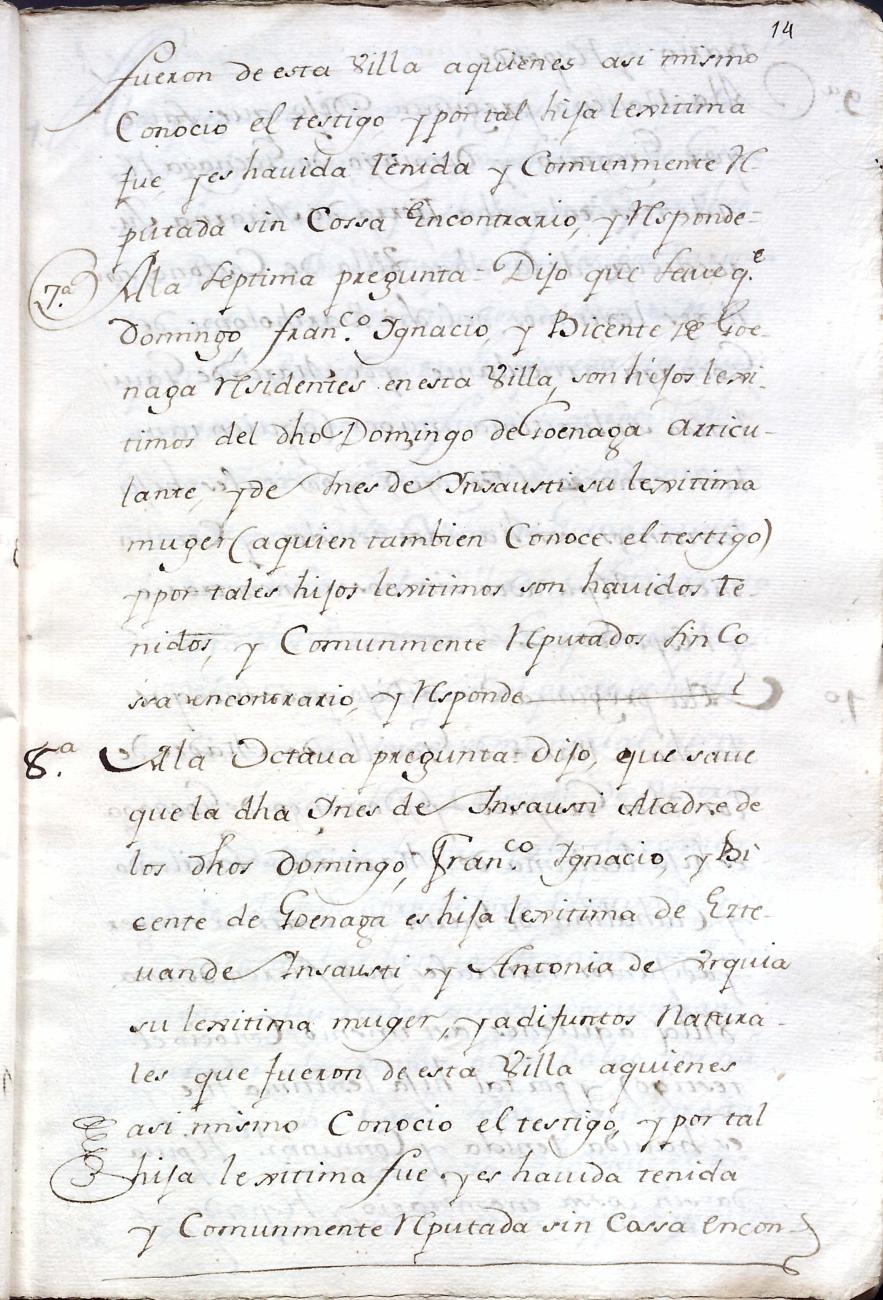 14
fueron de esta Villa aquienes asi mismo
Conocio el testigo, y por tal hija lexitima
fue, y es havida tenida y Comunmente R-
putada sin Cossa encontrario, y Rsponde-
7.a Ala Septima pregunta - Dijo que save q.e
Domingo, fran.co Ygnacio, y Bicente de Goe-
naga Rsidentes en esta Villa, son hijos lexi-
timos del dho Domingo de Goenaga Articu-
lante, y de Ynes de Ynsausti su lexitima
muger (aquien tambien Conoce el testigo)
y por tales hijos lexitimos son havidos te-
nidos, y Comunmente Rputados Sin Co
ssa encontrario, y Rsponde
8.a Ala Octava pregunta dijo, que save
que la dha Ynes de Ynsausti Madre de
los dhos Domingo, Fran.co Ygnacio, y Bi
cente de Goenaga es hija lexitima de Este-
van de Ynsausti, y Antonia de Vrquia
su lexitima muger, ya difuntos Natura-
les que fueron de esta Villa aquienes
asi mismo Conocio el testigo, y por tal
hija lexitima fue y es havida tenida
y Comunmente Rputada sin Cossa encon-